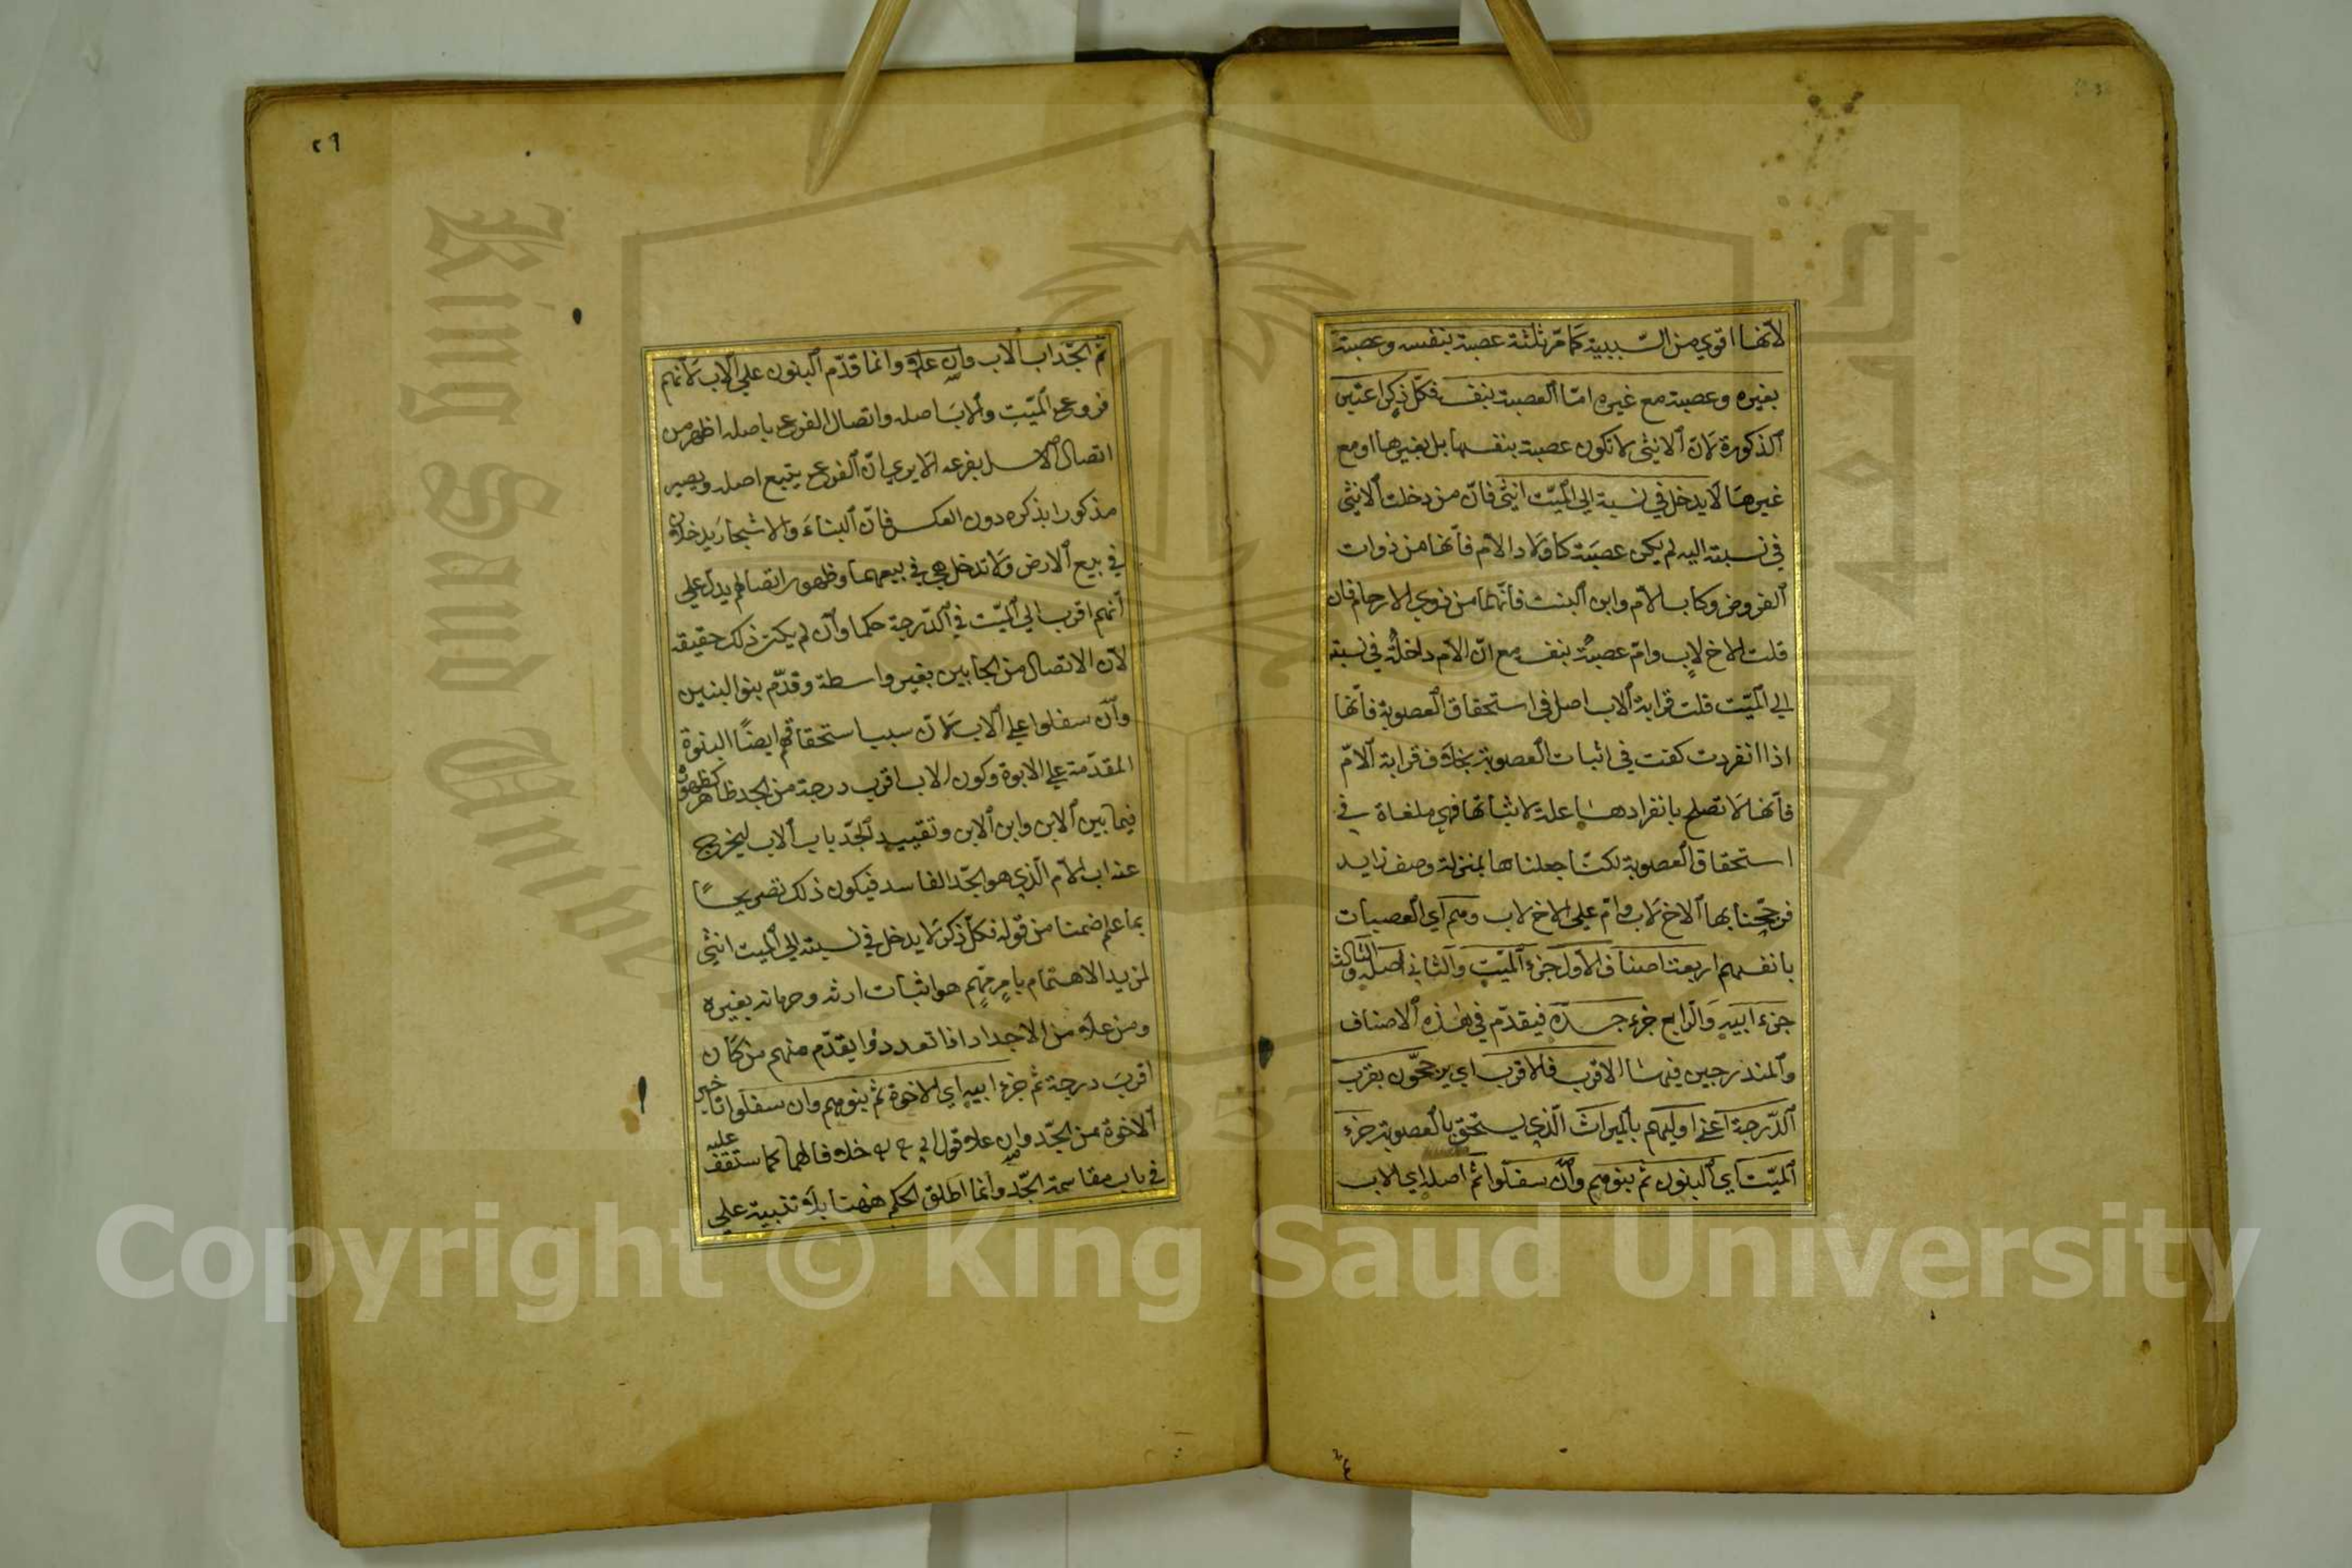 لانها اقوي من السببية كما مر ثلثة عصبة بنفسه وعصبة
بغيره وعصبة مع غيره اما العصبة بنفسه فكل ذكر اعتبر
الذكورة لان الانثى لا تكون عصبة بنفسها بل بغيرها او مع
غيرها لا يدخل في نسبة الى الميت انثى فان من دخلت الانثى
في نسبته اليه لم يكن عصبة كاولاد الام فانها من ذوات
الفروض وكاب الام وابن البنت فانهما من ذوي الارحام فان
قلت الاخ لاب وام عصبة بنفسه مع ان الام داخلة في نسبة
الي الميت قلت قرابة الاب اصل في استحقاق العصوبة فانها
اذا انفردت كفت في اثبات العصوبة بخلاف قرابة الام
فانها لا تصلح بانفرادها علة لاثباتها فهي ملغاة في
استحقاق العصوبة لكنا جعلناها بمنزلة وصف زايد
فرجحنا بها الاخ لاب وام على الاخ لاب وهم اي العصبات
بانفسهم اربعة اصناف الاول جزء الميت والثاني اصله والثالث
جزء ابيه والرابع جزء جده فيقدم في هذه الاصناف
والمندرجين فيها الاقرب فالاقرب اي يرجحون بقرب
الدرجة اعني اوليهم بالميراث الذي يستحق بالعصوبة جزء
الميت اي البنون ثم بنوهم وان سفلوا ثم اصله اي الاب
٢٩
ثم الجد اب الاب وان علا وانما قدم البنون علي الاب لانهم
فروع الميت والاب اصله واتصال الفرع باصله اظهر من
اتصال الاصل بفرعه الا يري ان الفرع يتبع اصله ويصير
مذكورا بذكره دون العكس فان البناء والاشجار يدخلان
في بيع الارض ولا تدخل هي في بيعهما وظهور اتصالهم يدل علي
انهم اقرب الي الميت في الدرجة حكما وان لم يكن ذلك حقيقة
لان الاتصال من الجانبين بغير واسطة وقدم بنو البنين
وان سفلوا علي الاب لان سبب استحقاقهم ايضا البنوة
المقدمة علي الابوة وكون الاب اقرب درجة من الجد ظاهر كظهوره
فيما بين الابن وابن الابن وتقييد الجد باب الاب ليخرج
عنه اب الام الذي هو الجد الفاسد فيكون ذلك تصريحا
بما علم ضمنا من قوله فكل ذكر لا يدخل في نسبته الي الميت انثى
لمزيد الاهتمام بامر مهم هو اثبات ارثه وحرمانه بغيره
ومن علا من الاجداد اذا تعددوا يقدم منهم من كان
اقرب درجة ثم جزء ابيه اي الاخوة ثم بنوهم وان سفلوا تاخير
الاخوة من الجد وان علا قول ابي ح ره خلافا لهما كما ستقف عليه
في باب مقاسمة الجد وانما اطلق الحكم ههنا بلا تنبيه علي
King Saud University
1957
Copyright © King Saud University